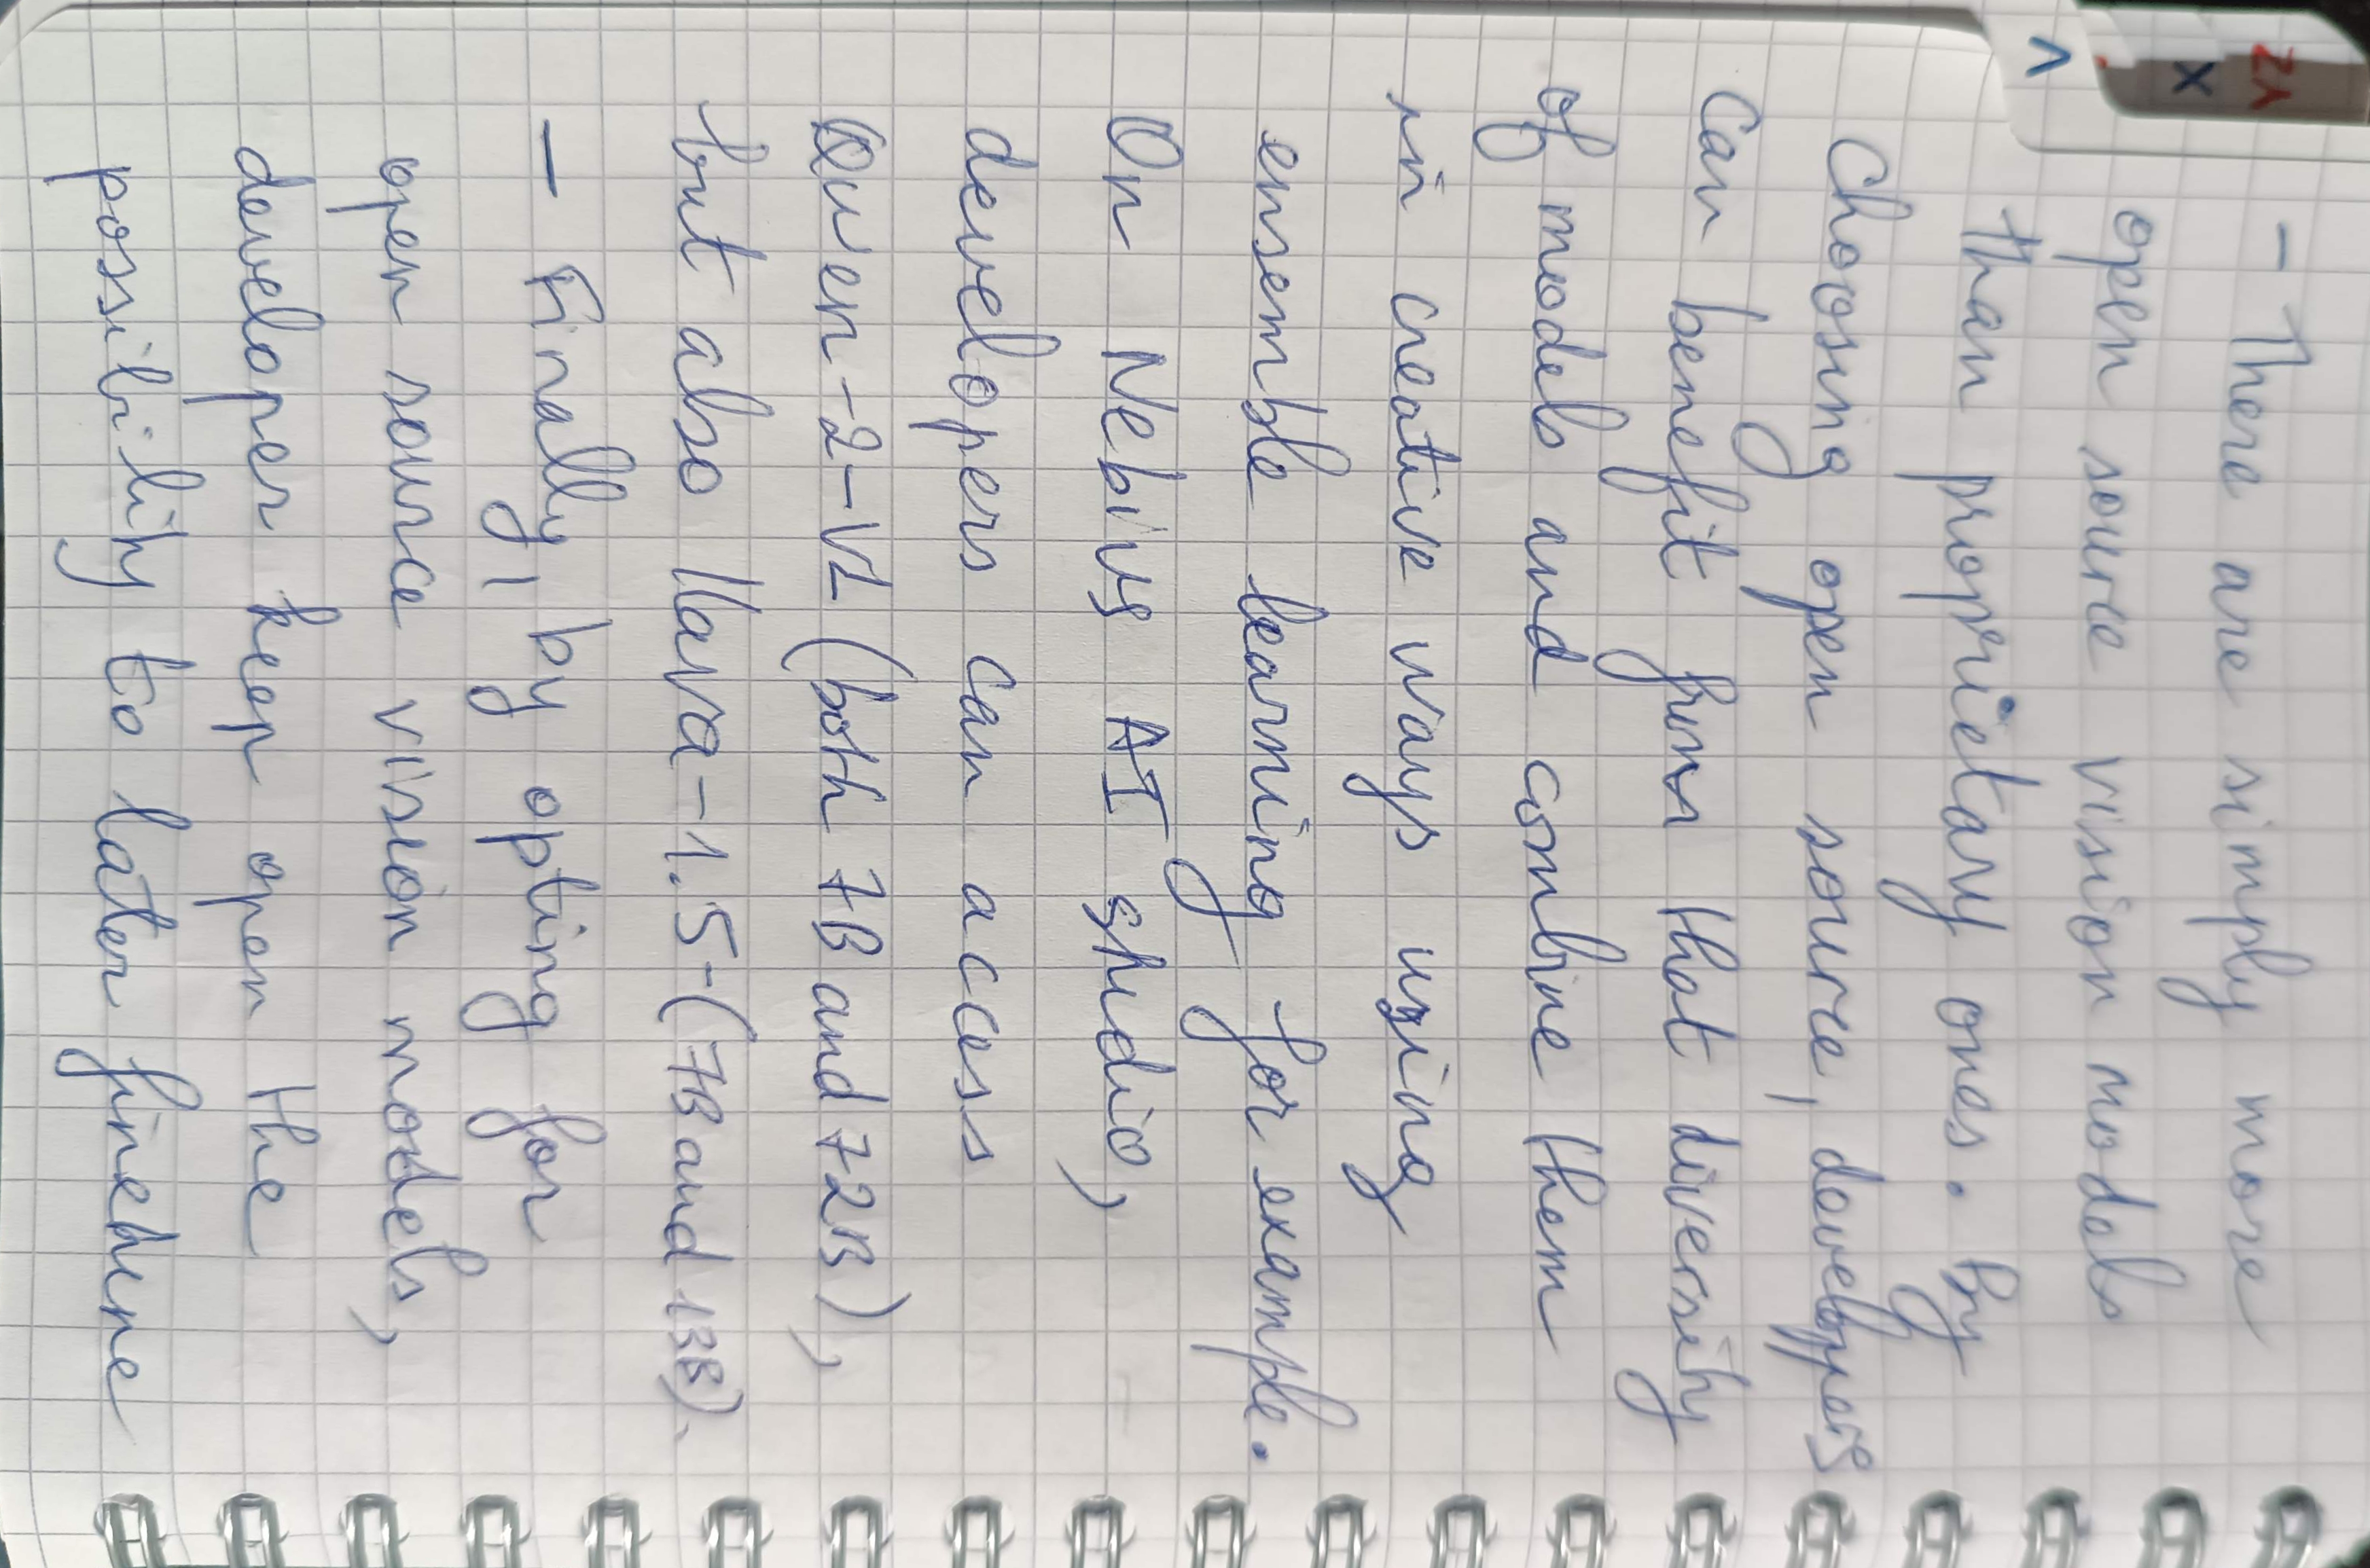 - There are simply more
open source vision models
than proprietary ones. By
Choosing open source, developpers
Can benefit from that diversity
of models and combine them
in creative ways using
ensemble learning for example.
On Nebius AI studio,
developers can access
Qwen-2-VL (both 7B and 72B),
but also llava-1.5-(7B and 13B).
- Finally, by opting for
open source vision models,
developer keep open the
possibility to later finetune